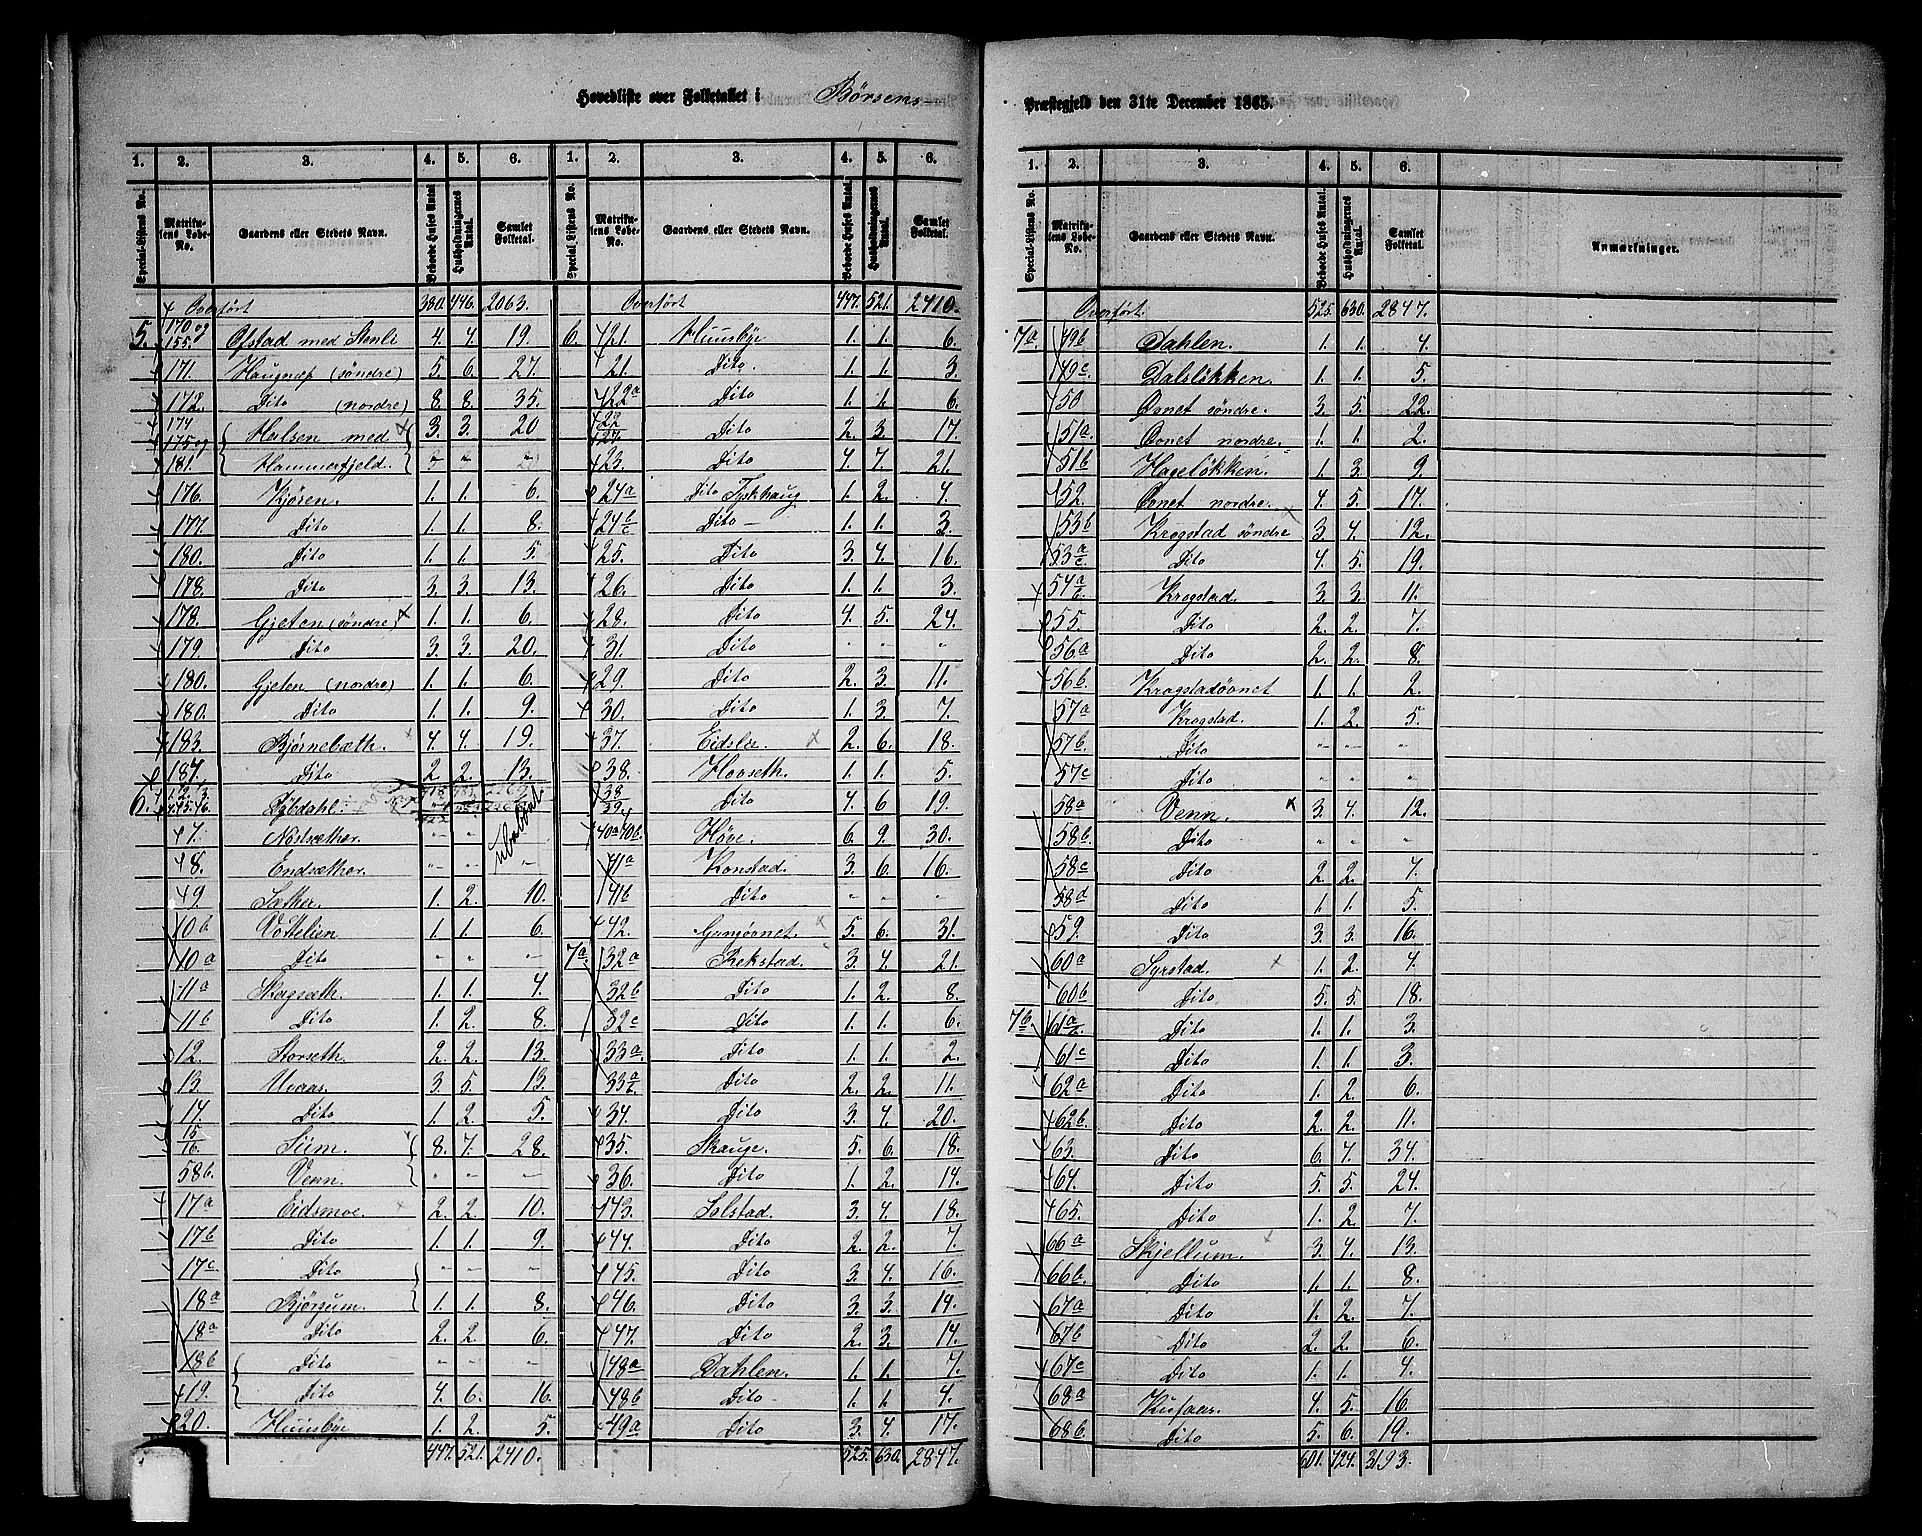 Hovedliste over Folketallet i Børsens Præstegjeld den 31te December 1865.
1. 2. 3. 4. 5. 6. 1. 2. 3. 4. 5. 6.
Special-Listens No. Matrikulens Løbe-No. Gaardens eller Stedets Navn. Beboede Huses Antal. Husholdningernes Antal. Samlet Folketal. Special-Listens No. Matrikulens Løbe-No. Gaardens eller Stedets Navn. Beboede Huses Antal. Husholdningernes Antal. Samlet Folketal.
Overført 380. 446. 2063.
5. 170 og 155. Ofstad med Stenli 4. 4. 19.
171. Haugnæs (søndre) 5. 6. 27.
172. Dito (nordre) 8. 8. 35.
174 175 og Halsen med 3. 3. 20
181. Hammerfjeld. " " "
176. Kjøren. 1. 1. 6.
177. Dito 1. 1. 8.
180. Dito 1. 1. 5.
178. Dito 3. 3. 13.
178. Gjeten (søndre) 1. 1. 6.
179. Dito 3. 3. 20.
180. Gjeten (nordre) 1. 1. 6.
180. Dito 1. 1. 9.
183. Bjørnebæth. 4. 4. 19.
187. Dito 2. 2. 13.
6. 1. 2. 3. 4. 5. 6.
47. " "
48. Endsæther. " " " ubeboet
49. Sæther. 1. 2. 10.
10b Vottelien 1. 1. 6.
10a Dito " " "
11a Skogsæth. 1. 1. 4.
11b Dito 1. 2. 8.
12. Storseth. 2. 2. 13.
13. Uvaas. 3. 5. 13.
14 Dito 1. 2. 5.
15 16. Siim. 8. 7. 28.
58b. Venn. " " "
17a Eidsmoe. 2. 2. 10.
17b Dito 1. 1. 9.
17c Dito " " "
18a Bjørsum. 1. 1. 8.
18a Dito 2. 2. 6.
18b Dito " " "
19. Dito 4. 6. 16.
20. Huusbye 1. 2. 5.
447. 521. 2410.
Overført 447. 521. 2410.
6. 21. Huusbye 1. 1. 6.
21. Dito 1. 1. 3.
22a Dito 1. 1. 6.
22 27. Dito 2. 3. 17.
23. Dito 4. 7. 21.
24a Dito Tyskhaug 1. 2. 4.
24b c Dito 1. 1. 3.
25. Dito 3. 4. 16.
26. Dito 1. 1. 3.
28. Dito 4. 5. 24.
31. Dito " " "
29. Dito 2. 3. 11.
30. Dito 1. 3. 7.
37. Eidslie. 2. 6. 18.
38. Hovseth. 1. 1. 5.
38 39. Dito 4. 6 19.
40a 40b. Høve. 6. 9. 30.
41a Konstad. 3. 6. 16.
41b Dito " " "
42. Gumoønet. 5. 6. 31.
7a. 32a Rekstad. 3. 4. 21.
32b Dito 1. 2. 8.
32c Dito 1. 1. 6.
33a. Dito 1. 1. 2.
33a c. Dito 2. 2. 11.
34. Dito 3. 4. 20.
35. Skauge. 5. 6. 18.
36. Dito 1. 2. 14.
43. Solstad. 3. 4. 18.
44. Dito 2. 2. 7.
45. Dito 3. 4. 16.
46. Dito 3. 3. 14.
47. Dito 2. 3. 14.
48a Dahlen. 1. 1. 7.
48b Dito 1. 1. 4.
49a Dito 3. 4. 17.
525. 630. 2847.
1. 2. 3. 4. 5. 6.
Special-Listens No. Matrikulens Løbe-No. Gaardens eller Stedets Navn. Beboede Huses Antal. Husholdningernes Antal. Samlet Folketal. Anmærkninger.
Overført. 525. 630. 2847.
7a 49b Dahlen. 1. 1. 4.
49c Dalsløkken. 1. 1. 5.
50 Oonet søndre. 3. 5. 22.
51a Oonet nordre. 1. 1. 2.
51b Hageløkken. 1. 3. 9.
52. Oonet nordre. 4. 5. 17.
53b Krogstad søndre 3. 4. 12.
53a c Dito 4. 5. 19.
54a c Krogstad. 3. 3. 11.
55. Dito 2. 2. 7.
56a Dito 2. 2. 8.
56b. Krogstadoonet 1. 1. 2.
57a Krogstad. 1. 2. 5.
57b. Dito " " "
57c Dito " " "
58a Venn. 3. 4. 12.
58b Dito " " "
58c Dito 2. 2. 7.
58d Dito 1. 1. 5.
59. Dito 3. 3. 16.
60a Syrstad. 1. 2. 4.
60b Dito 5. 5. 18.
7b 61a b. Dito 1. 1. 3.
61c Dito 1. 1. 3.
62a Dito 1. 2. 6.
62b. Dito 2. 2. 11.
63. Dito 6. 7. 34.
64. Dito 5. 5. 24.
65. Dito 1. 2. 7.
66a Skjellum. 3. 4. 13.
66b. Dito 1. 1. 8.
67a Dito 1. 2. 7.
67b Dito 2. 2. 6.
67c Dito 1. 1. 4.
68a Kufaas. 4. 5. 16.
68b. Dito 5. 6. 19.
601. 724. 3193.